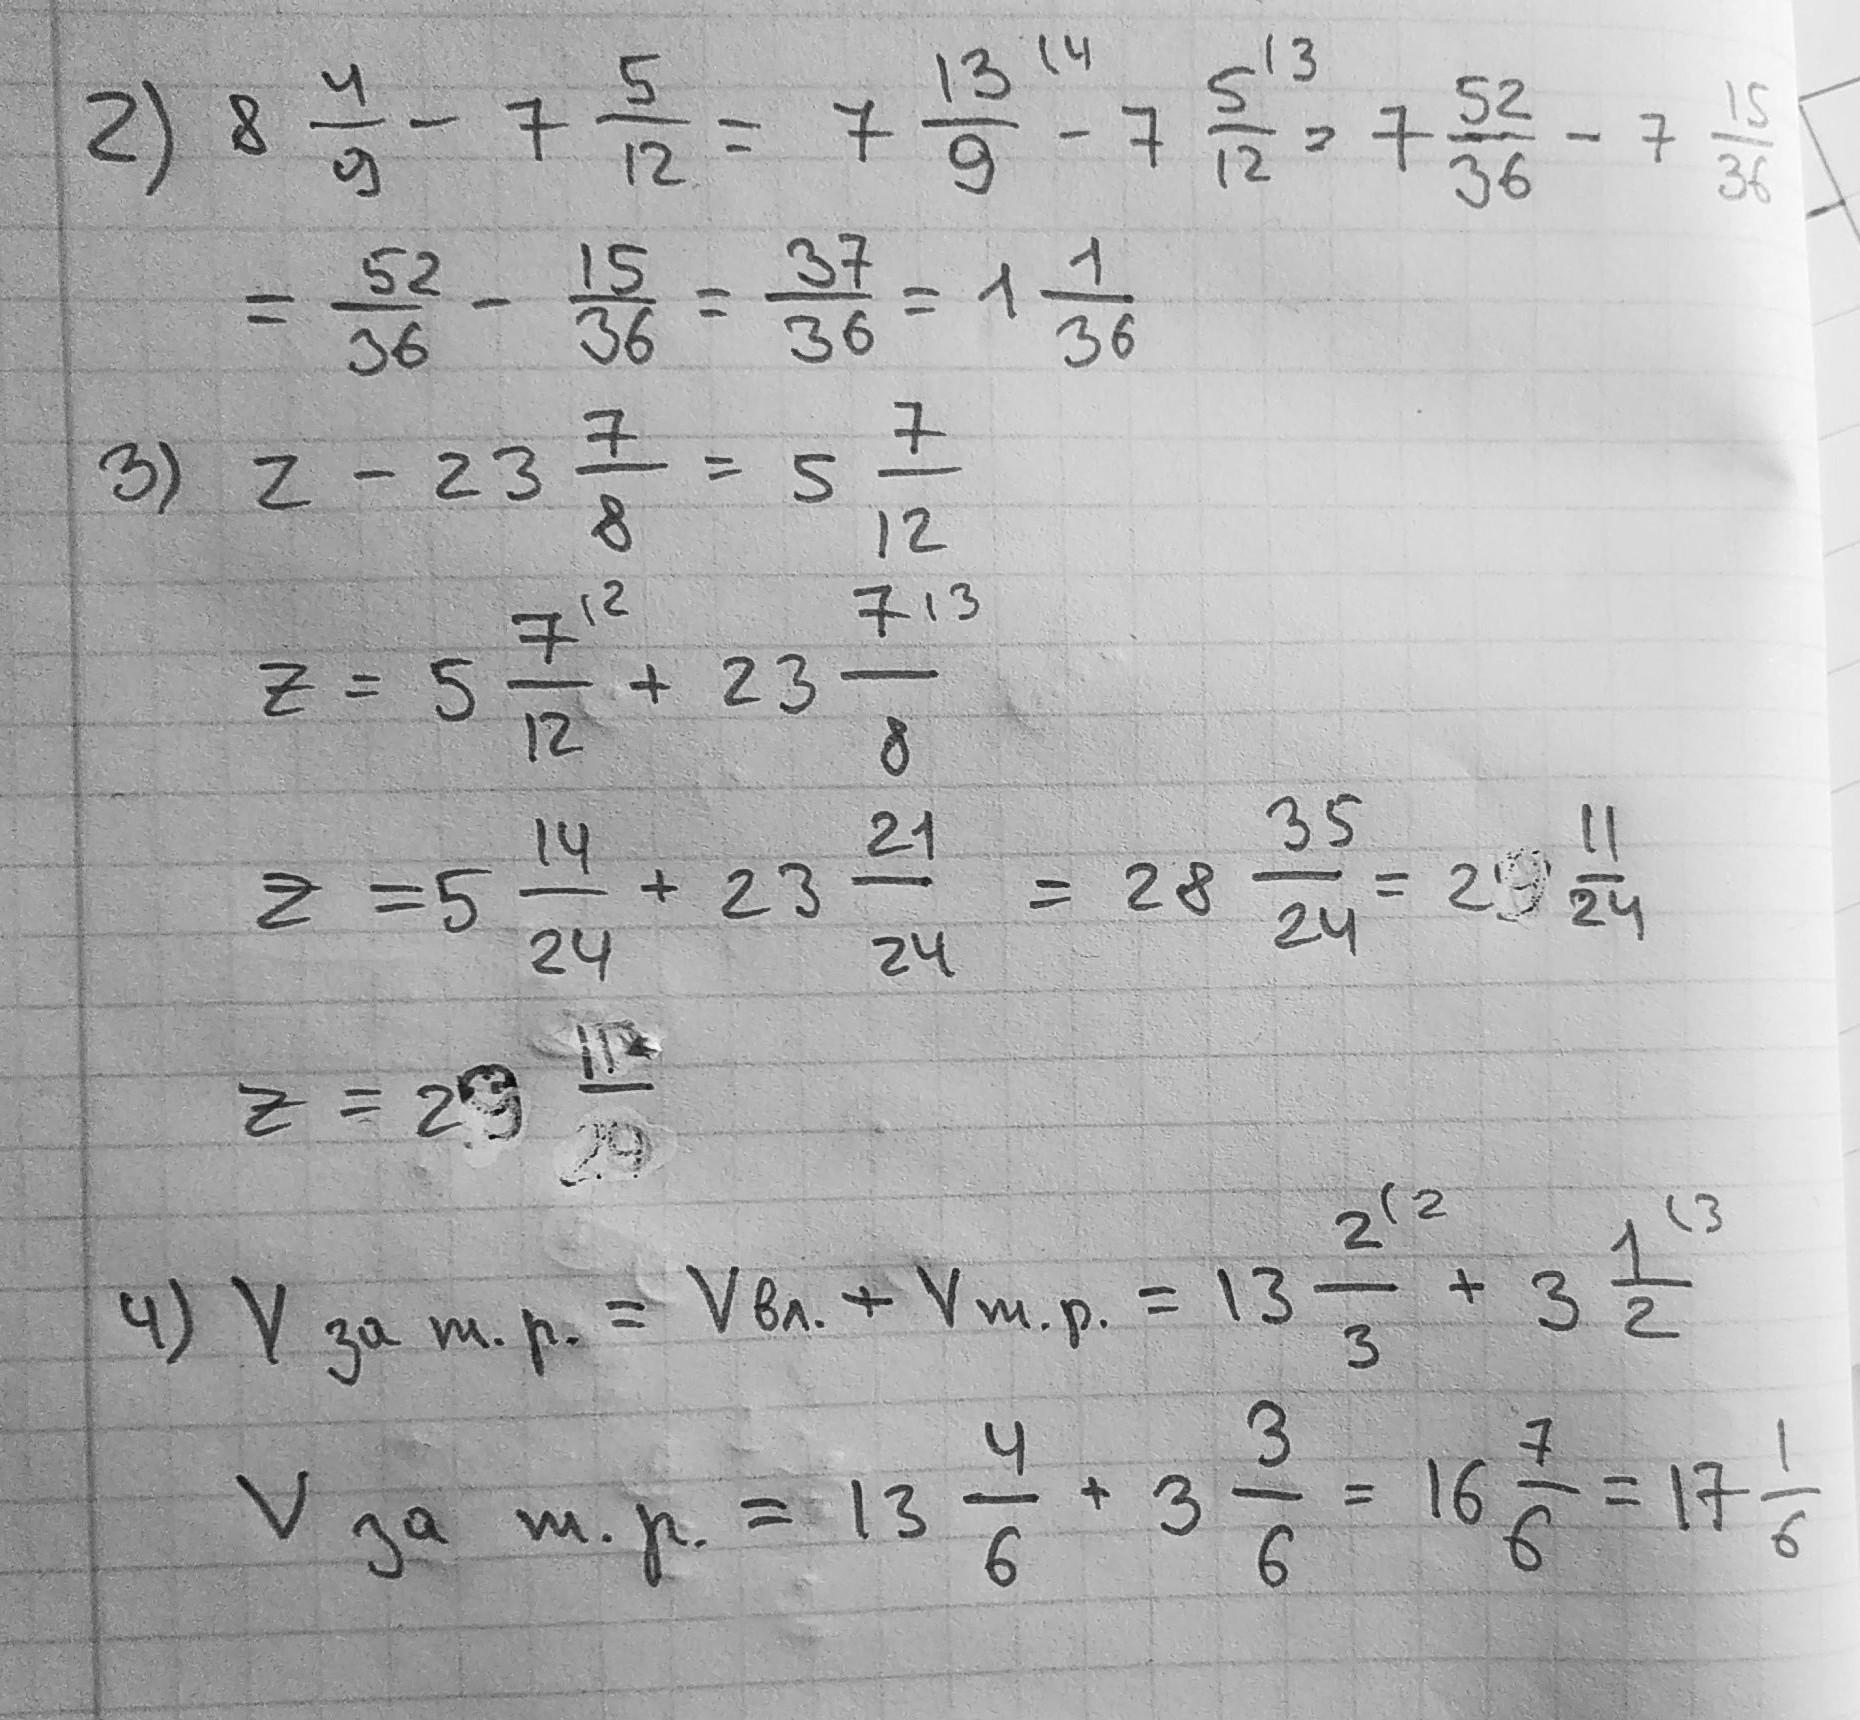 2) 8 4/9 - 7 5/12 = 7 13/9 (4 - 7 5/12 (3 = 7 52/36 - 7 15/36
= 52/36 - 15/36 = 37/36 = 1 1/36
3) z - 23 7/8 = 5 7/12
z = 5 7/12 (2 + 23 7/8 (3
z = 5 14/24 + 23 21/24 = 28 35/24 = 29 11/24
z = 29 11/29
4) V за т.р. = V вл. + V т.р. = 13 2/3 (2 + 3 1/2 (3
V за т.р. = 13 4/6 + 3 3/6 = 16 7/6 = 17 1/6